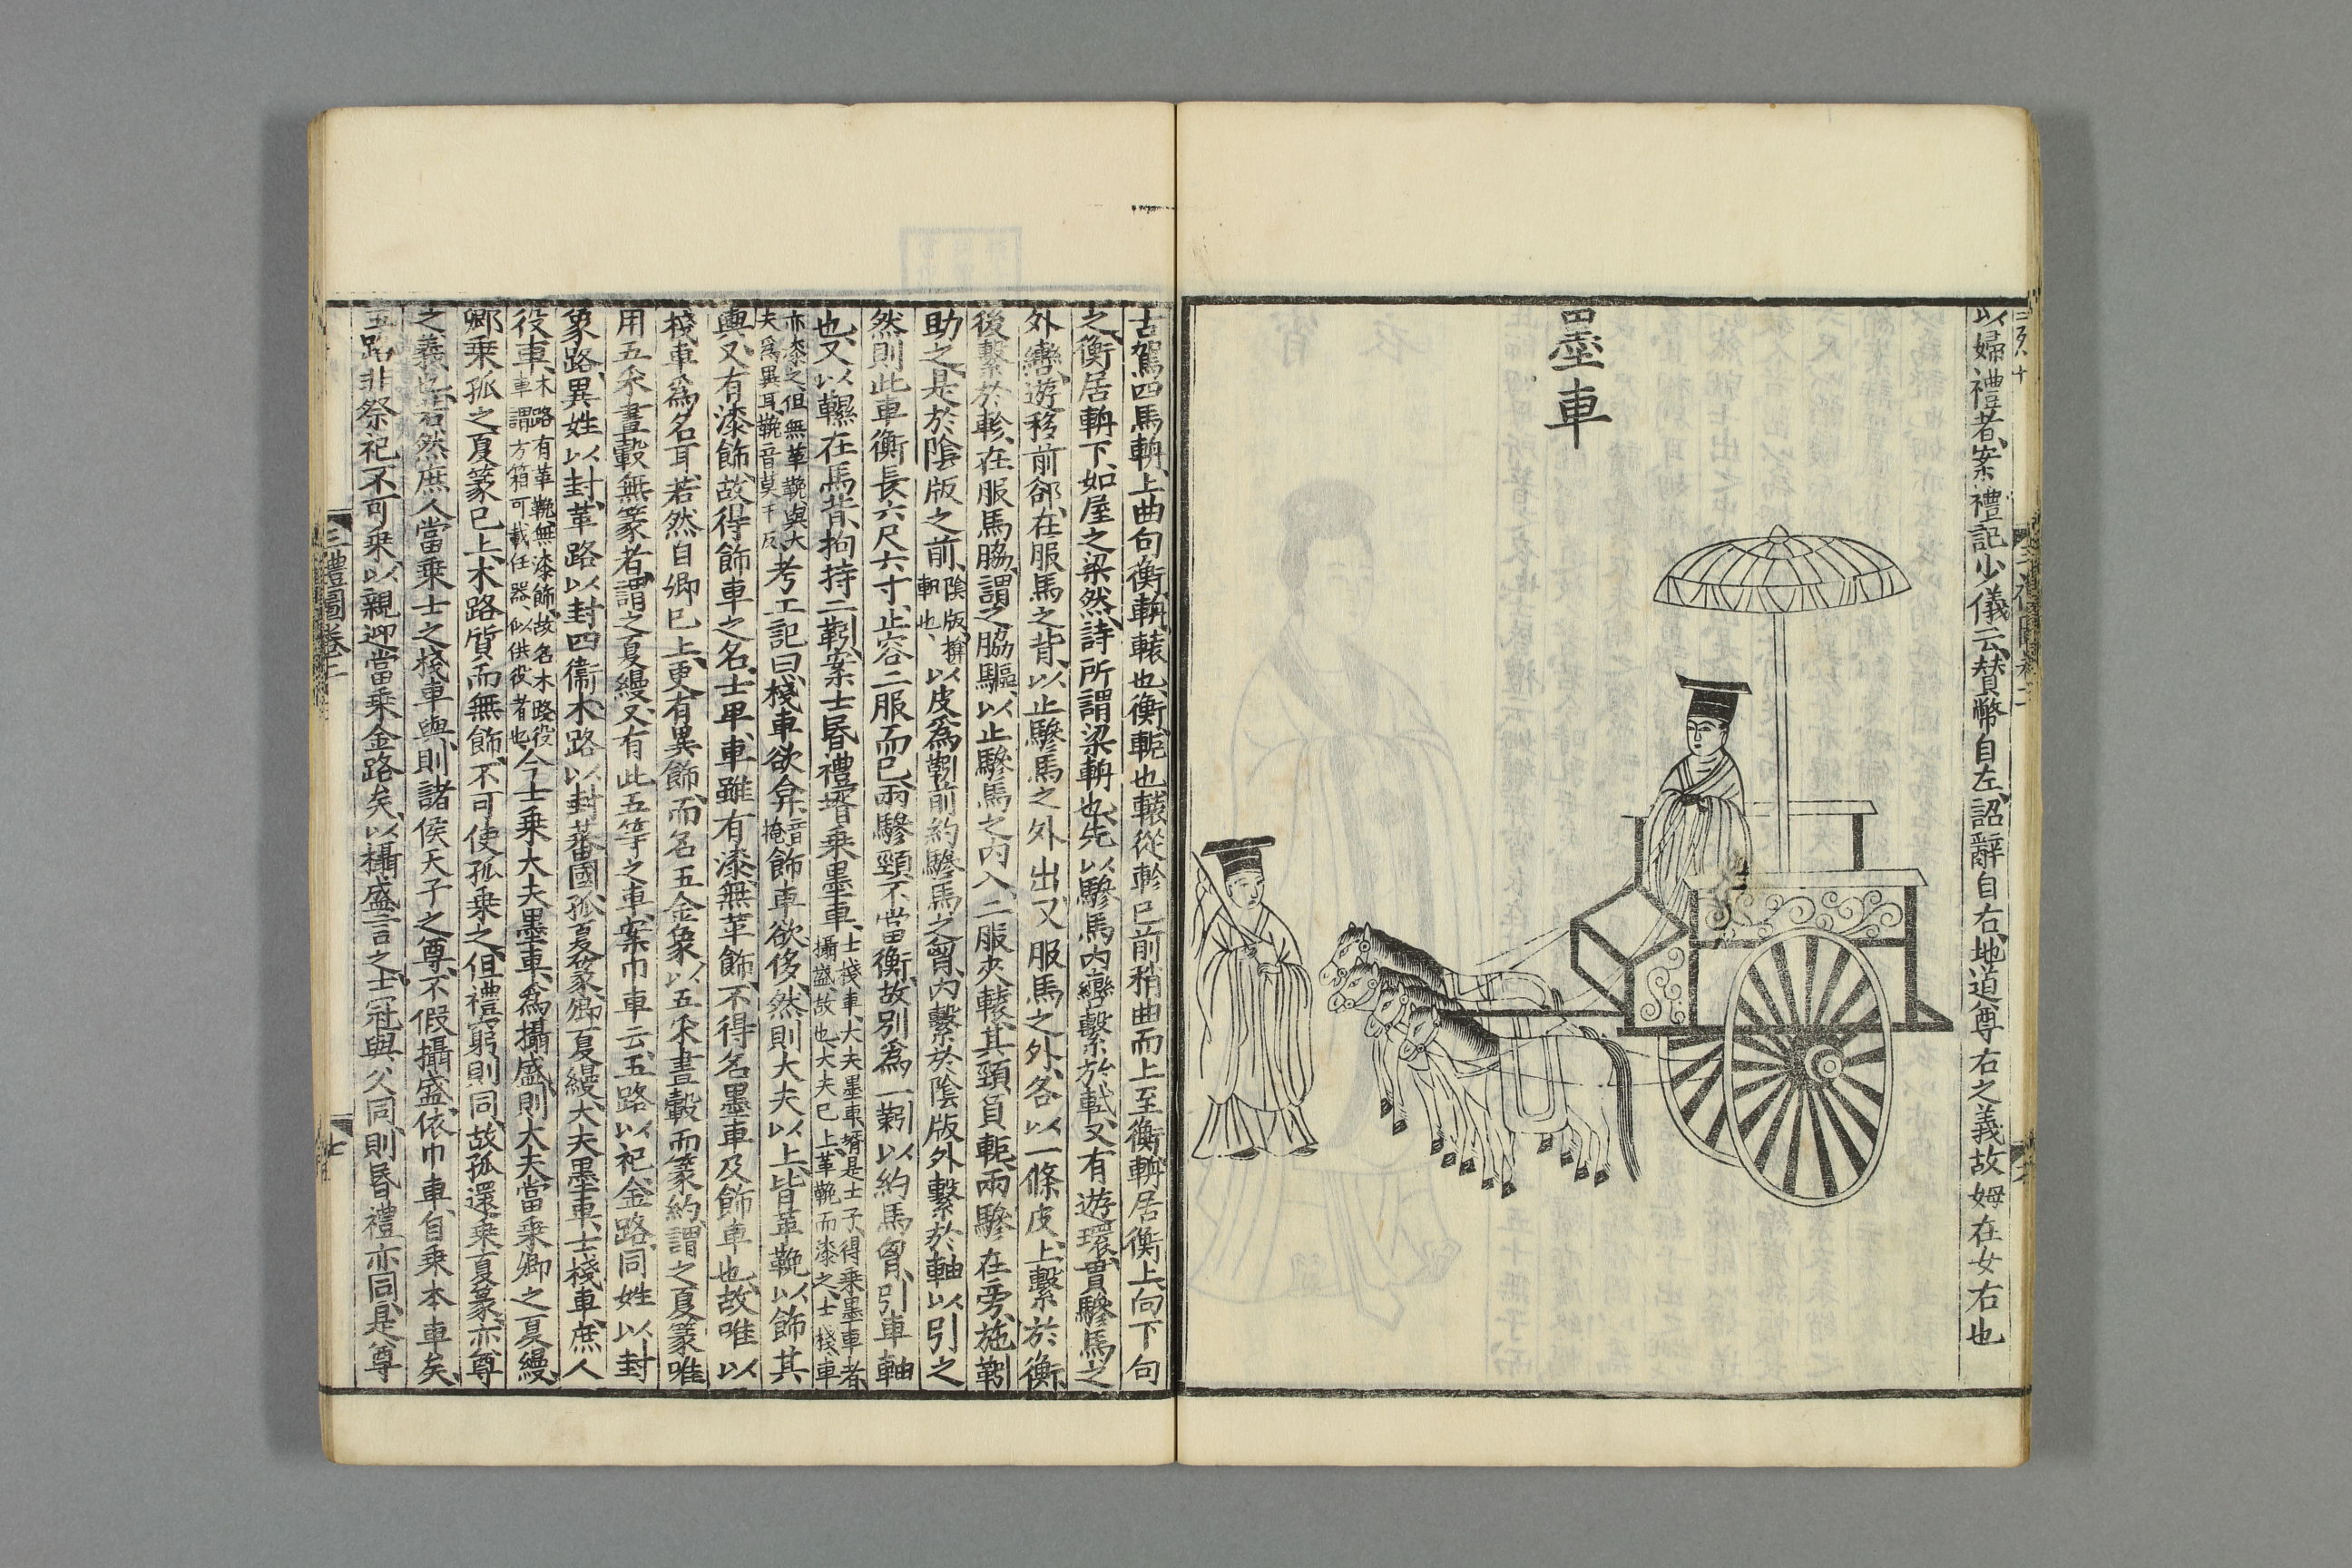 以婦禮者案禮記少儀云賛幣自左詔辭自右地道尊右之義故姆在女右也
墨車
古駕四馬輈上曲句衡輈轅也衡軛也轅從軫已前稍曲而上至衡輈居衡上向下句
之衡居輈下如屋之梁然詩所謂梁輈也先以驂馬内轡繫於軾又有遊環貫驂馬之
外轡遊移前郤在服馬之背以止驂馬之外出又服馬之外各以一條皮上繫於衡
後繫於軫在服馬脇謂之脇驅以止驂馬之内入二服夾轅其頸負軛兩驂在旁施靷
助之是於陰版之前陰版揜軓也以皮爲靷前約驂馬之胷内繫於陰版外繫於軸以引之
然則此車衡長六尺六寸止容二服而已兩驂頸不當衡故別爲一靷以約馬胷引車軸
也又以䩞在馬背拘持二靷案士昏禮壻乗墨車士棧車大夫墨車壻是士子得乗墨車者攝盛故也大夫已上革鞔而漆之士棧車
亦漆之但無革鞔與大夫爲異耳鞔音莫干反考工記曰棧車欲弇音掩飾車欲侈然則大夫以上皆革鞔以飾其
輿又有漆飾故得飾車之名士卑車雖有漆無革飾不得名墨車及飾車也故唯以
棧車爲名耳若然自卿已上更有異飾而名五金象以五采畫轂而篆約謂之夏篆唯
用五采畫轂無篆者謂之夏縵又有此五等之車案巾車云五路以祀金路同姓以封
象路異姓以封革路以封四衞木路以封蕃國孤夏篆卿夏縵大夫墨車士棧車庶人
役車木路有革鞔無漆飾故名木路役車謂方箱可載任器以供役者也今士乗大夫墨車爲攝盛則大夫當乗卿之夏縵
卿乗孤之夏篆已上木路質而無飾不可使孤乗之但禮窮則同故孤還乗夏篆亦尊
之義也若然庶人當乗士之棧車與則諸侯天子之尊不假攝盛依巾車自乗本車矣
玉路非祭祀不可乗以親迎當乗金路矣以攝盛言之士冠與父同則昏禮亦同是尊
三禮圖卷二
七